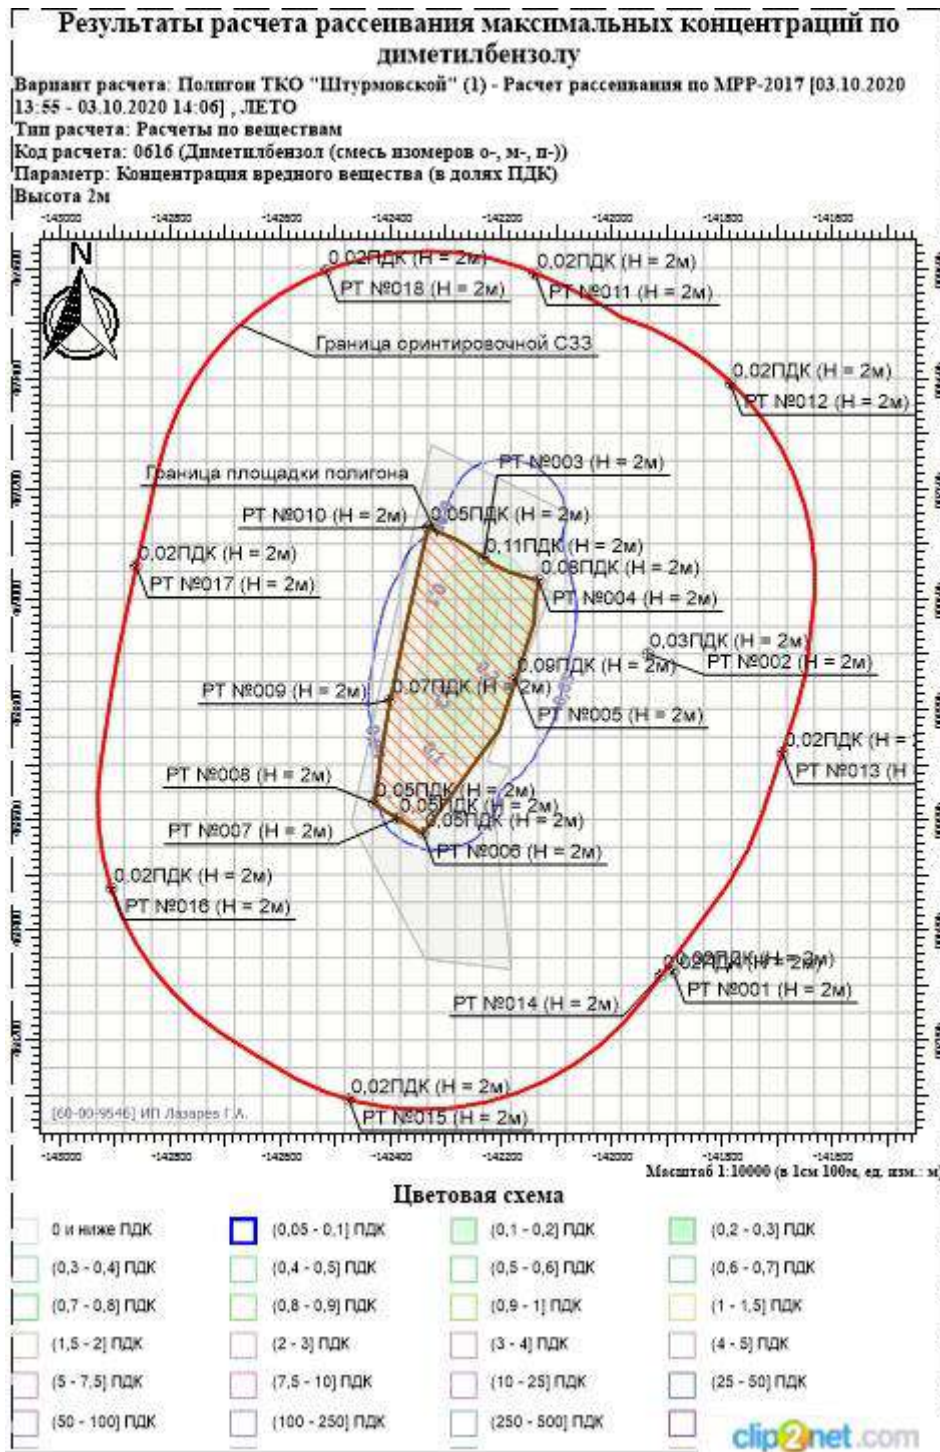 Результаты расчета рассеивания максимальных концентраций по
диметилбензолу
Вариант расчета: Полигон ТКО "Штурмовской" (1) - Расчет рассеивания по МРР-2017 [03.10.2020
13:55 - 03.10.2020 14:06] , ЛЕТО
Тип расчета: Расчеты по веществам
Код расчета: 0616 (Диметилбензол (смесь изомеров о-, м-, п-))
Параметр: Концентрация вредного вещества (в долях ПДК)
Высота 2м
-143000 -142800 -142600 -142400 -142200 -142000 -141800 -141600
N
0,02ПДК (Н = 2м) 0,02ПДК (Н = 2м)
РТ №018 (Н = 2м) РТ №011 (Н = 2м)
Граница оринтировочной СЗЗ
0,02ПДК (Н = 2м)
РТ №012 (Н = 2м)
Граница площадки полигона РТ №003 (Н = 2м)
РТ №010 (Н = 2м) 0,05ПДК (Н = 2м)
0,02ПДК (Н = 2м) 0,11ПДК (Н = 2м)
0,08ПДК (Н = 2м)
РТ №017 (Н = 2м) РТ №004 (Н = 2м)
0,1
0,03ПДК (Н = 2м)
0,09ПДК (Н = 2м) РТ №002 (Н = 2м)
РТ №009 (Н = 2м) 0,07ПДК (Н = 2м)
РТ №005 (Н = 2м)
0,02ПДК (Н =
РТ №013 (Н
0,1
РТ №008 (Н = 2м) 0,05ПДК (Н = 2м)
0,05ПДК (Н = 2м)
РТ №007 (Н = 2м) 0,05ПДК (Н = 2м)
РТ №006 (Н = 2м)
0,02ПДК (Н = 2м)
РТ №016 (Н = 2м)
0,02ПДК (Н = 2м)
0,02ПДК (Н = 2м)
РТ №014 (Н = 2м) РТ №001 (Н = 2м)
0,02ПДК (Н = 2м)
[60-00-9546] ИП Лазарев Г.А. РТ №015 (Н = 2м)
-143000 -142800 -142600 -142400 -142200 -142000 -141800 -141600
Масштаб 1:10000 (в 1см 100м, ед. изм.: м
Цветовая схема
0 и ниже ПДК (0,05 - 0,1] ПДК (0,1 - 0,2] ПДК (0,2 - 0,3] ПДК
(0,3 - 0,4] ПДК (0,4 - 0,5] ПДК (0,5 - 0,6] ПДК (0,6 - 0,7] ПДК
(0,7 - 0,8] ПДК (0,8 - 0,9] ПДК (0,9 - 1] ПДК (1 - 1,5] ПДК
(1,5 - 2] ПДК (2 - 3] ПДК (3 - 4] ПДК (4 - 5] ПДК
(5 - 7,5] ПДК (7,5 - 10] ПДК (10 - 25] ПДК (25 - 50] ПДК
(50 - 100] ПДК (100 - 250] ПДК (250 - 500] ПДК
clip2net.com